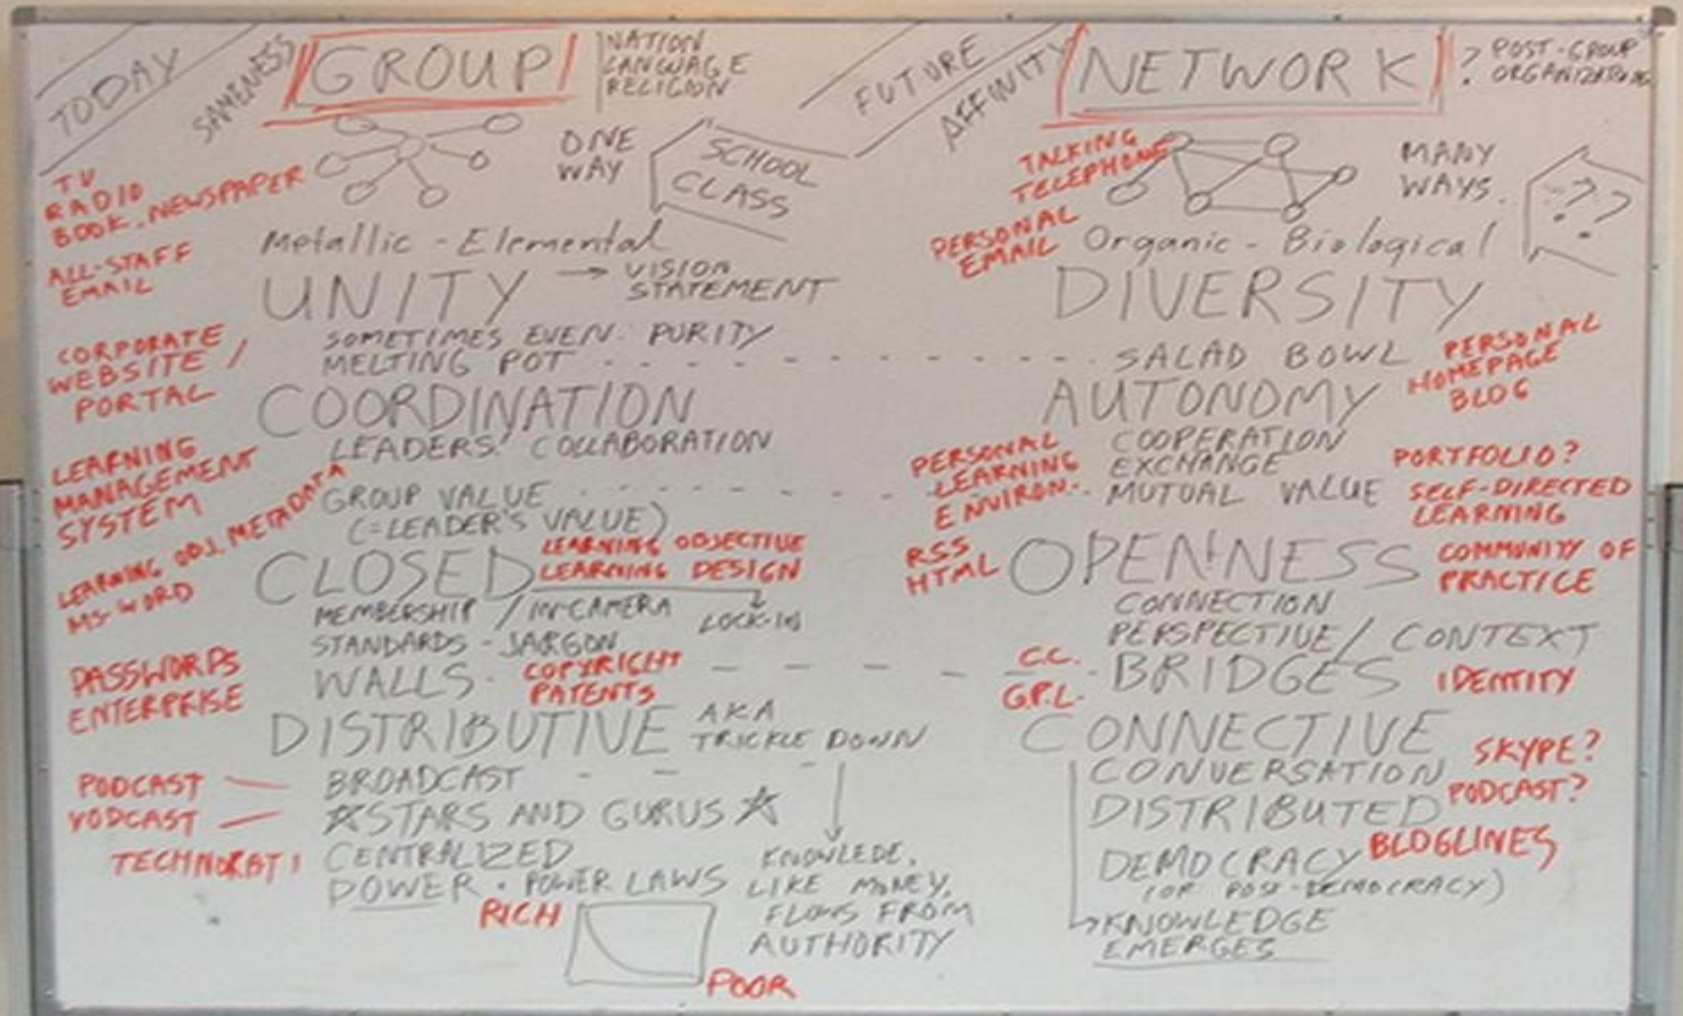 TODAY
SAMENESS
GROUP
NATION
LANGUAGE
RELIGION
ONE
WAY
SCHOOL
CLASS
TV
RADIO
BOOK. NEWSPAPER
Metallic - Elemental
ALL-STAFF
EMAIL
UNITY → VISION
STATEMENT
SOMETIMES EVEN: PURITY
MELTING POT
CORPORATE
WEBSITE /
PORTAL
COORDINATION
LEADERS! COLLABORATION
LEARNING
MANAGEMENT
SYSTEM
GROUP VALUE
(=LEADER'S VALUE)
LEARNING OBJ. METADATA
MS-WORD
CLOSED
LEARNING OBJECTIVE
LEARNING DESIGN
MEMBERSHIP / IN-CAMERA
LOCK-IN
STANDARDS - JARGON
PASSWORDS
ENTERPRISE
WALLS
COPYRIGHT
PATENTS
DISTRIBUTIVE AKA
TRICKLE DOWN
PODCAST
VODCAST
BROADCAST
STARS AND GURUS
TECHNORATI
CENTRALIZED
POWER . POWER LAWS
RICH
POOR
KNOWLEDE,
LIKE MONEY,
FLOWS FROM
AUTHORITY
FUTURE
AFFINITY
NETWORK
? POST-GROUP
ORGANIZATIONS
TALKING
TELEPHONE
MANY
WAYS.
???
PERSONAL
EMAIL
Organic - Biological
DIVERSITY
SALAD BOWL
PERSONAL
HOMEPAGE
BLOG
AUTONOMY
COOPERATION
EXCHANGE
MUTUAL VALUE
PERSONAL
LEARNING
ENVIRON.
PORTFOLIO?
SELF-DIRECTED
LEARNING
RSS
HTML
OPENNESS
COMMUNITY OF
PRACTICE
CONNECTION
PERSPECTIVE / CONTEXT
C.C.
G.P.L.
BRIDGES
IDENTITY
CONNECTIVE
SKYPE?
PODCAST?
CONVERSATION
DISTRIBUTED
BLOGLINES
DEMOCRACY
(OR POST-DEMOCRACY)
KNOWLEDGE
EMERGES